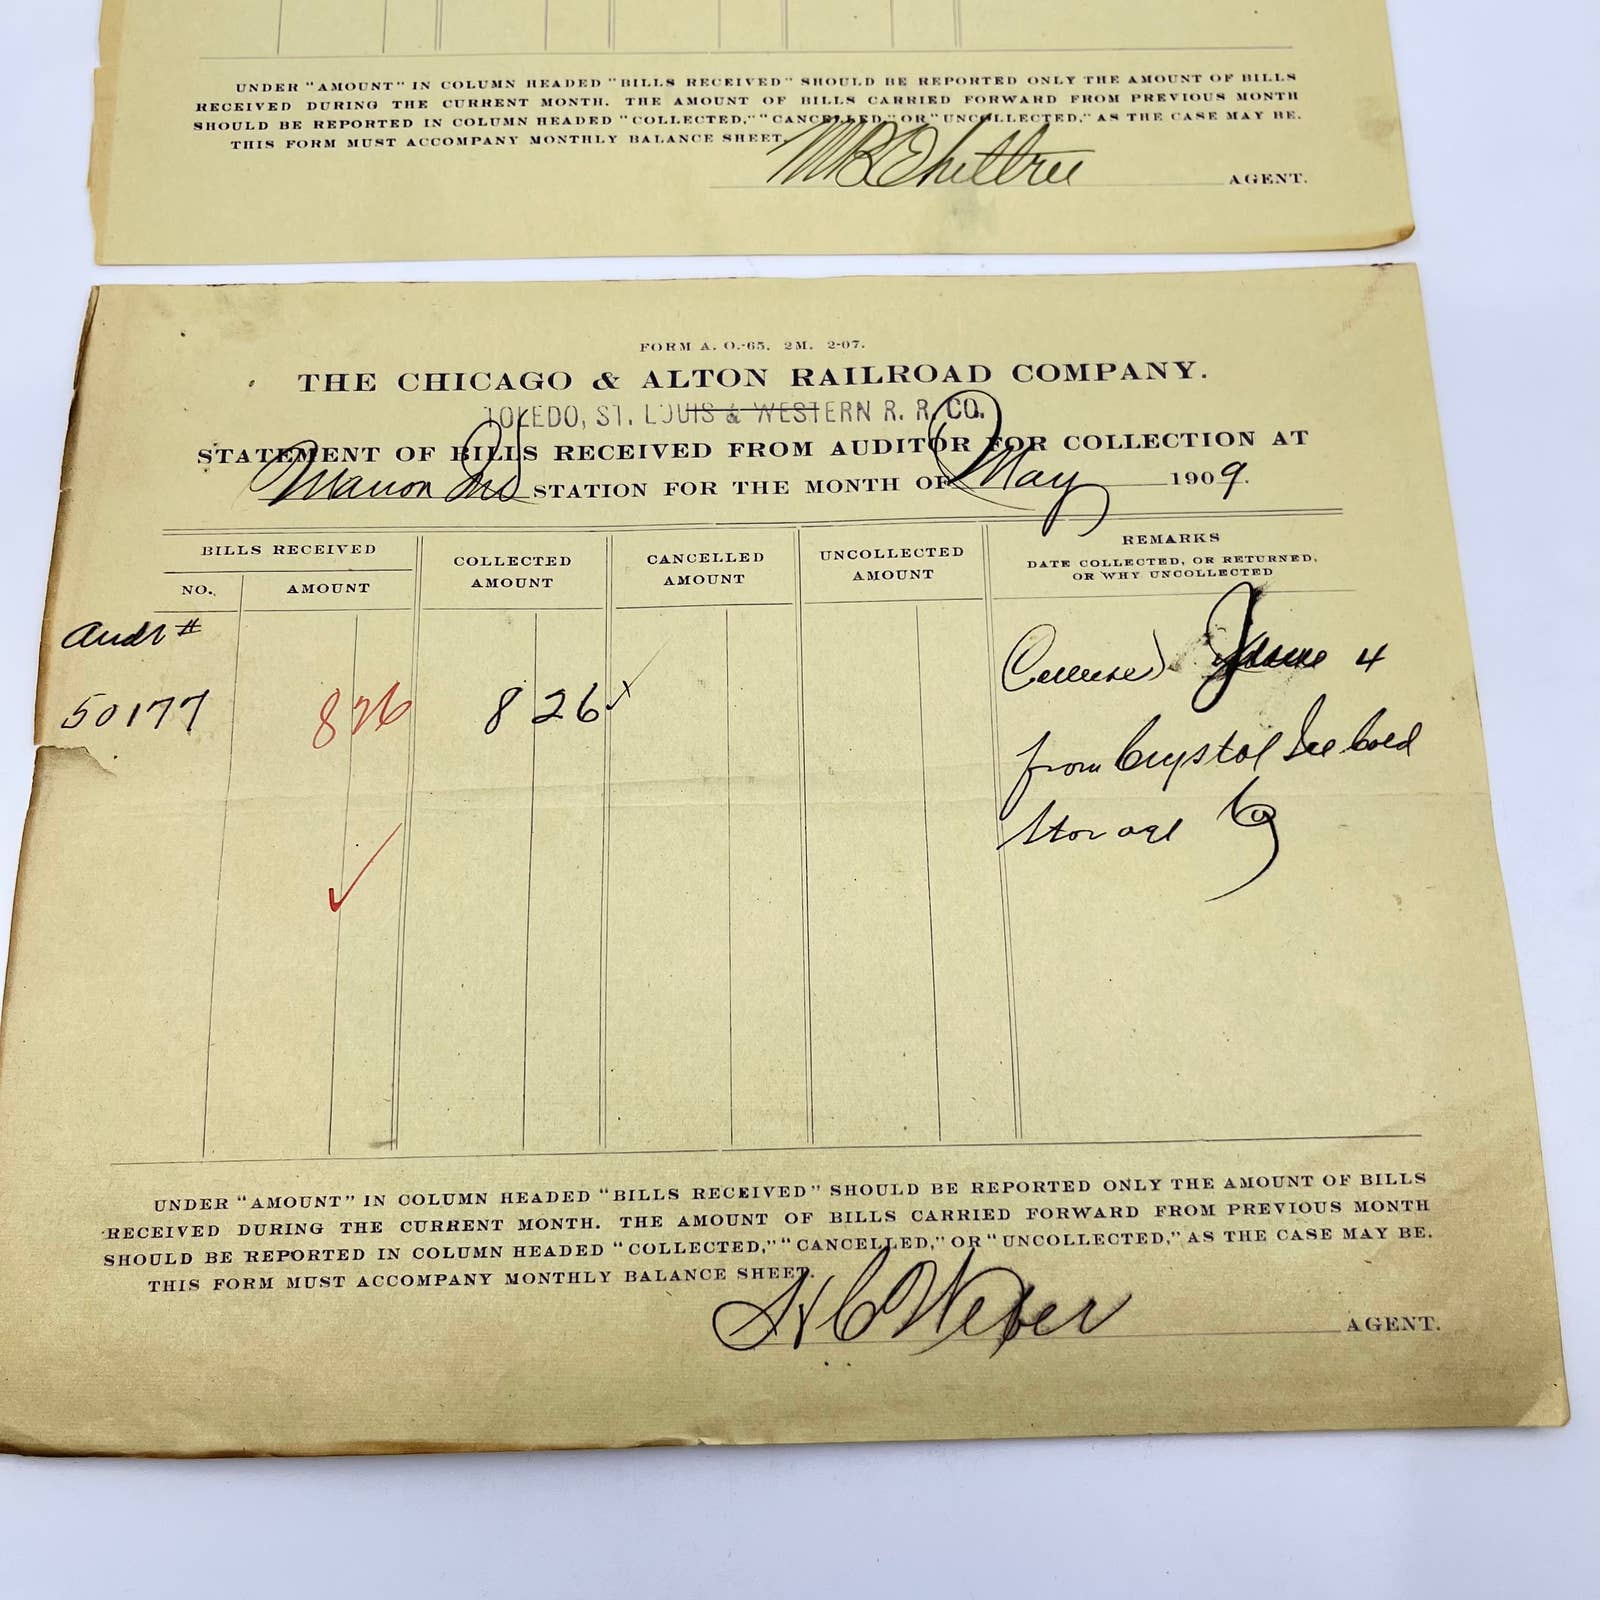 UNDER "AMOUNT" IN COLUMN HEADED "BILLS RECEIVED" SHOULD BE REPORTED ONLY THE AMOUNT OF BILLS
RECEIVED DURING THE CURRENT MONTH. THE AMOUNT OF BILLS CARRIED FORWARD FROM PREVIOUS MONTH
SHOULD BE REPORTED IN COLUMN HEADED "COLLECTED," "CANCELLED," OR "UNCOLLECTED," AS THE CASE MAY BE.
THIS FORM MUST ACCOMPANY MONTHLY BALANCE SHEET.
AGENT.
FORM A. O.-65. 2M. 2-07.
THE CHICAGO & ALTON RAILROAD COMPANY.
TOLEDO, ST. LOUIS & WESTERN R. R. CO.
STATEMENT OF BILLS RECEIVED FROM AUDITOR FOR COLLECTION AT
Marion Ind STATION FOR THE MONTH OF May 1909.
BILLS RECEIVED
NO. AMOUNT
COLLECTED
AMOUNT
CANCELLED
AMOUNT
UNCOLLECTED
AMOUNT
REMARKS
DATE COLLECTED, OR RETURNED,
OR WHY UNCOLLECTED
Audt #
50177 8 26 8 26
June 4
from Crystal Ice Cold
Storage Co
UNDER "AMOUNT" IN COLUMN HEADED "BILLS RECEIVED" SHOULD BE REPORTED ONLY THE AMOUNT OF BILLS
RECEIVED DURING THE CURRENT MONTH. THE AMOUNT OF BILLS CARRIED FORWARD FROM PREVIOUS MONTH
SHOULD BE REPORTED IN COLUMN HEADED "COLLECTED," "CANCELLED," OR "UNCOLLECTED," AS THE CASE MAY BE.
THIS FORM MUST ACCOMPANY MONTHLY BALANCE SHEET.
H C Weber AGENT.